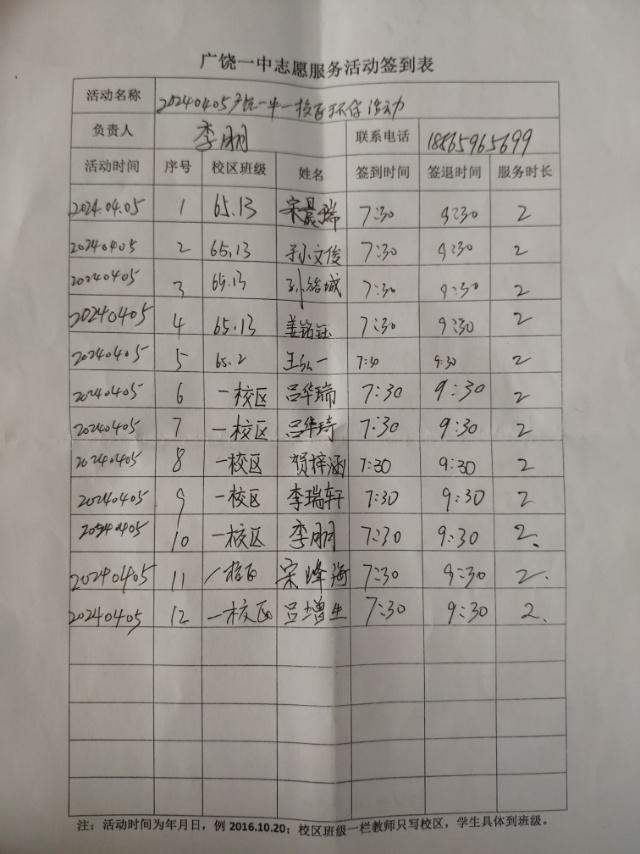 广饶一中志愿服务活动签到表
活动名称 20240405广饶一中一校区环保活动
负责人 李朋 联系电话 18865965699
活动时间 序号 校区班级 姓名 签到时间 签退时间 服务时长
2024.04.05 1 65.13 宋晨瑞 7:30 9:30 2
20240405 2 65.13 孙文俊 7:30 9:30 2
20240405 3 65.13 7:30 9:30 2
20240405 4 65.13 姜铭钰 7:30 9:30 2
20240405 5 65.2 7:30 9:30 2
20240405 6 一校区 吕华瑞 7:30 9:30 2
20240405 7 一校区 吕华琦 7:30 9:30 2
20240405 8 一校区 贺梓涵 7:30 9:30 2
20240405 9 一校区 李瑞轩 7:30 9:30 2
20240405 10 一校区 李朋 7:30 9:30 2.
20240405 11 一校区 宋峰海 7:30 9:30 2.
20240405 12 一校区 吕增生 7:30 9:30 2.
注：活动时间为年月日，例 2016.10.20；校区班级一栏教师只写校区，学生具体到班级。